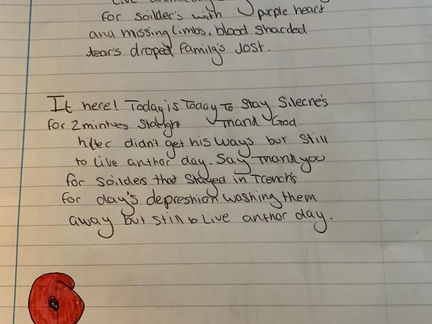 for soilder's with purple heart
and missing limbs. blood sharded
tear's droped family's lost.
It here! Today is Today To Stay Silecne's
for 2 mintues Staight Thank God
hilter didn't get his ways but Still
to live anthor day. Say Thank you
for soildes that Stayed in Trench's
for day's depreshion washing them
away but still to Live anthor day.